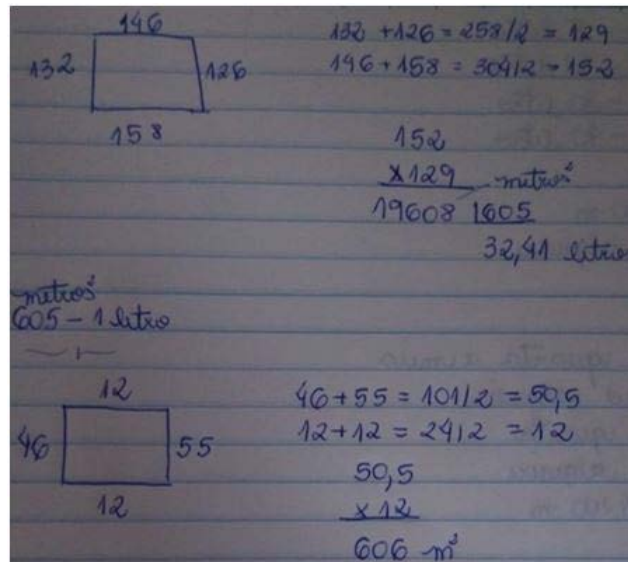 146
132
126
158
132 + 126 = 258/2 = 129
146 + 158 = 304/2 = 152
152
x 129
metros²
19608 | 605
32,41 litros
metros²
605 - 1 litro
12
46
55
12
46 + 55 = 101/2 = 50,5
12 + 12 = 24/2 = 12
50,5
x 12
606 m²